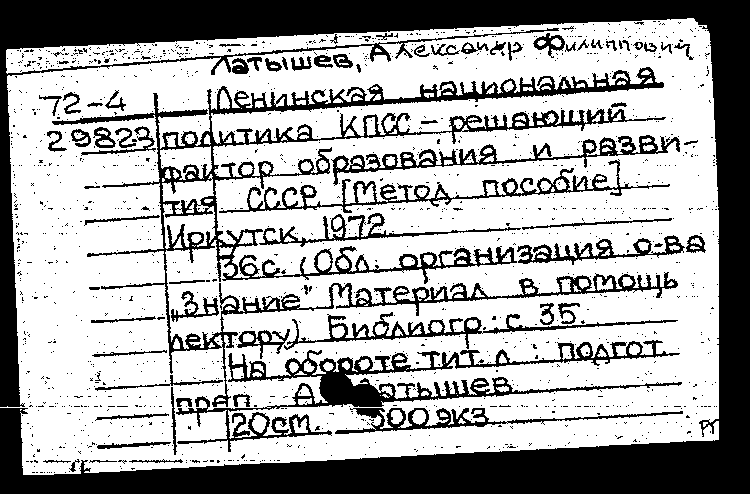 Латышев, Александр Филиппович
72-4 Ленинская национальная
29823 политика КПСС - решающий
фактор образования и разви-
тия СССР. [Метод. пособие].
Иркутск, 1972.
36с. (Обл. организация о-ва
„Знание" Материал в помощь
лектору). Библиогр.: с. 35.
На обороте тит. л.: подгот.
преп. А. Латышев
20см. 500экз